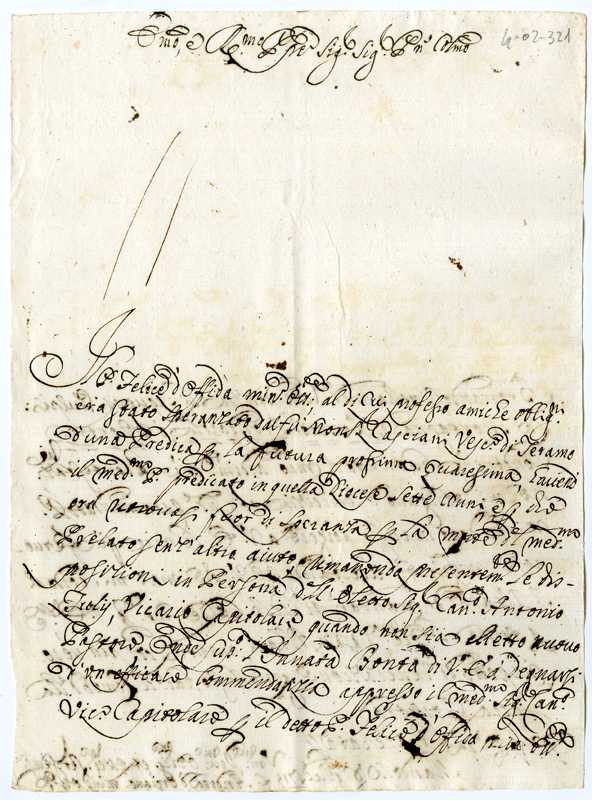 4-02-321
Emo, e Rmo Ppe Sig.r Sig.r Pne Colmo
Il P. Felice d'Offida min: Oss:, al di cui professo amiche obligni
era stato speranzato dal fù Mons.r Cassiani Vesc.o di Teramo
d'una Predica p. la futura prossima Quaresima havend
il med.mo P. predicato in quella Diocese sette Anni, e p. che
ora ritrovasi fuor di speranza p. la morte di med.mo
Prelato senz'altro aiuto, rimanendo presentem.te le dis-
posizioni in Persona dell'eletto Sig. Can.o Antonio
Vicario Capitolare, quando non sia eletto nuovo
Pastore. Onde l'Innata Bontà di V. E. degnarsi
d'un efficace Commendatizia appresso il med.mo Sig. Can.o
Vic.o Capitolare p. il detto P. Felice d'Offida min: Oss: